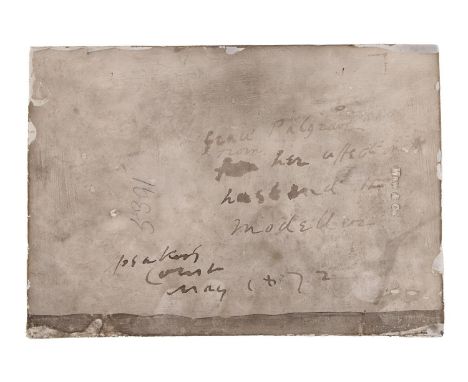 Grace Palgrave
from her affect
husband the
Modeller
Speakers
Court
May 1872